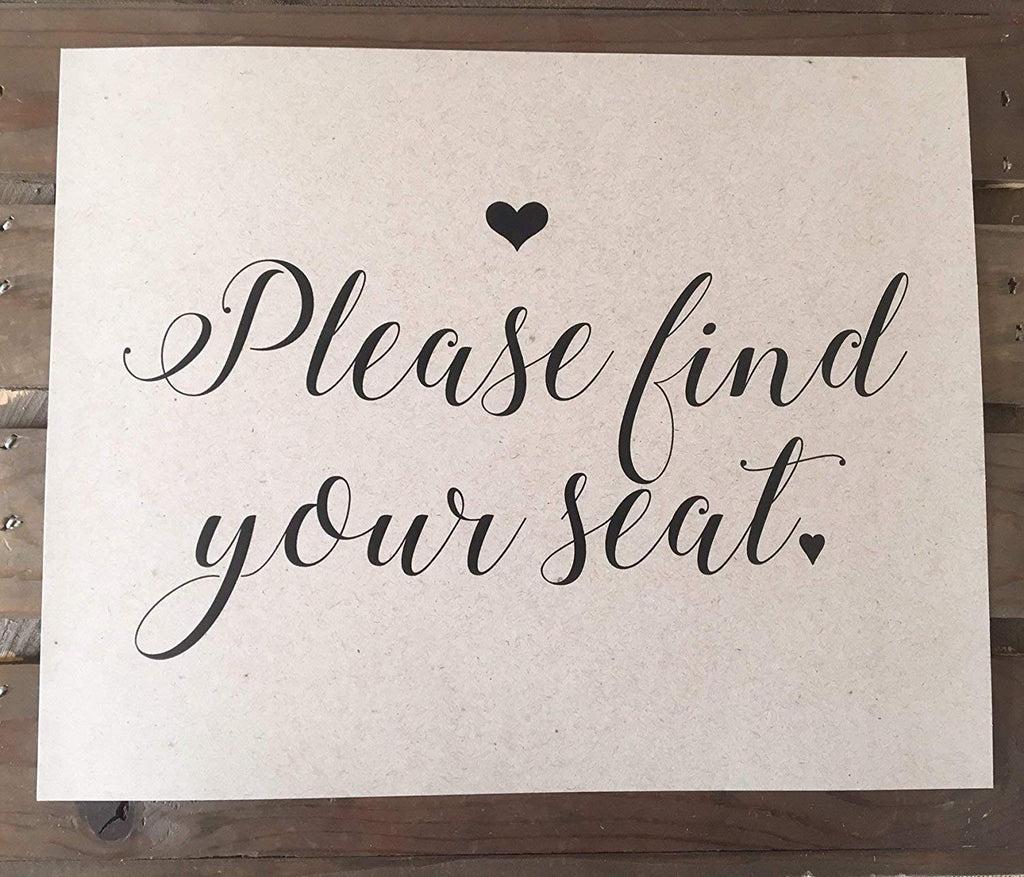 Please find
your seat.